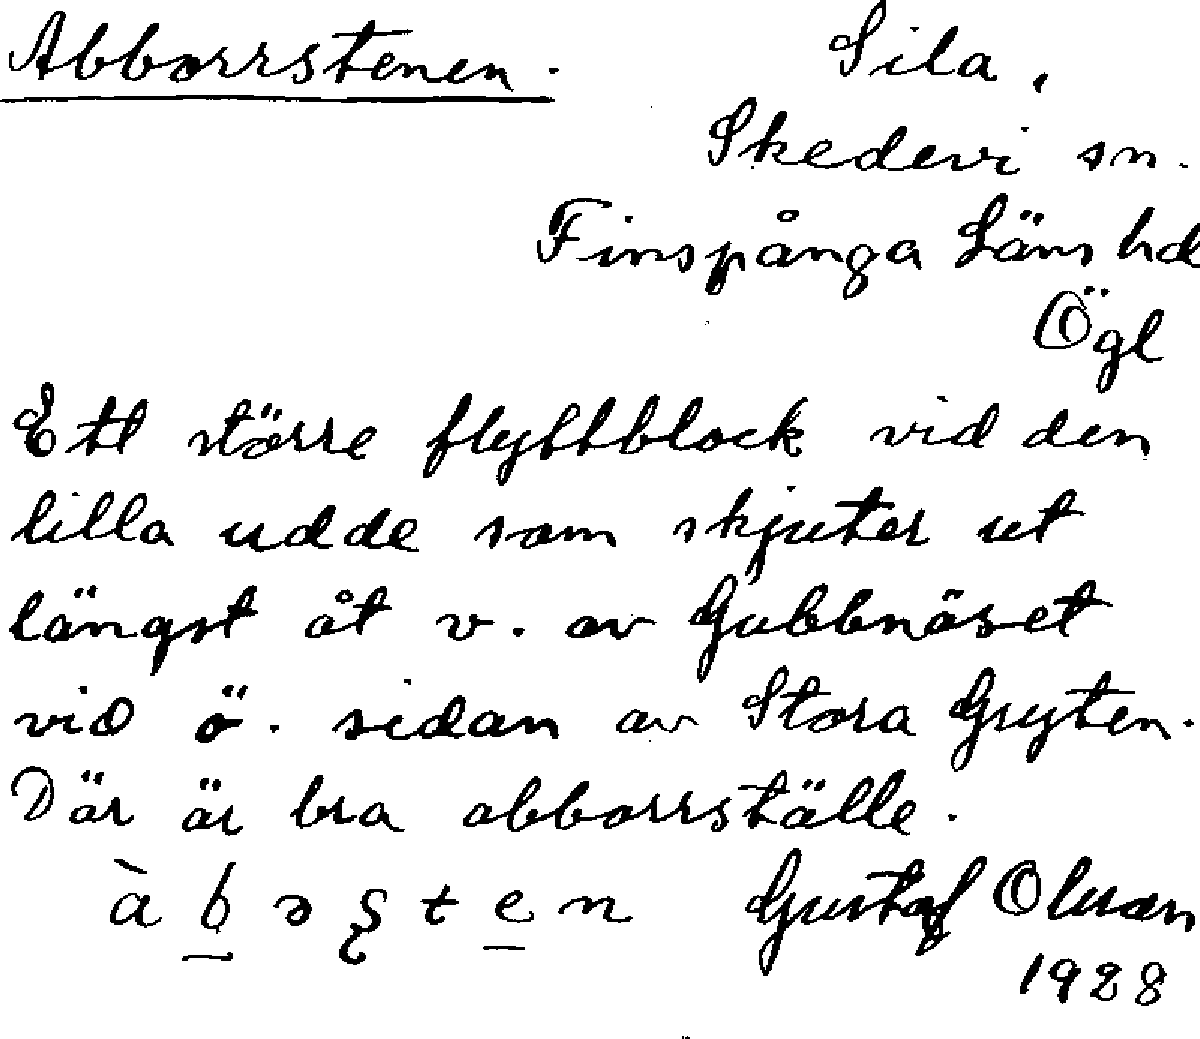 Abborrstenen.
Sila,
Skedevi sn.
Finspånga Läns hd
Ögl
Ett större flyttblock vid den
lilla udde som skjuter ut
längst åt v. av Gubbnäset
vid ö. sidan av Stora Gryten.
Där är bra abborrställe.
à b ɔ ʂ t e n Gustaf Olsson
1928